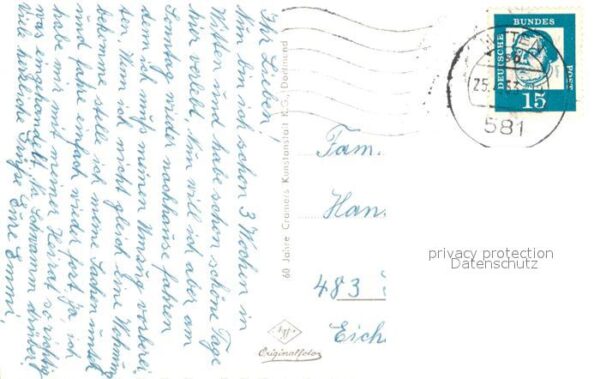 Ihr Lieben!
Nun bin ich schon 3 Wochen in
Witten und habe schon schöne Tage
hier verlebt. Nun will ich aber am
Sonntag wieder nachhause fahren
denn ich muß meinen Umzug vorberei-
ten. Wenn ich nicht gleich eine Wohnung
bekomme stelle ich meine Sachen unter
und fahre einfach wieder fort. Ja, ich
habe mir mit meiner Heirat so richtig
was eingehandelt. Ihr Lohmanns drüber!
Viele herzliche Grüße Eure Emmi
60 Jahre Cramers Kunstanstalt K.G., Dortmund
DEUTSCHE BUNDES POST
15
WITTEN
25.
581
Fam.
Han
483
Eich
privacy protection
Datenschutz
Originalfoto